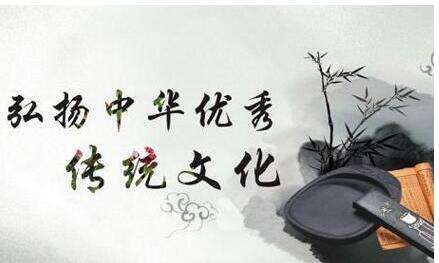 弘扬中华优秀
传统文化